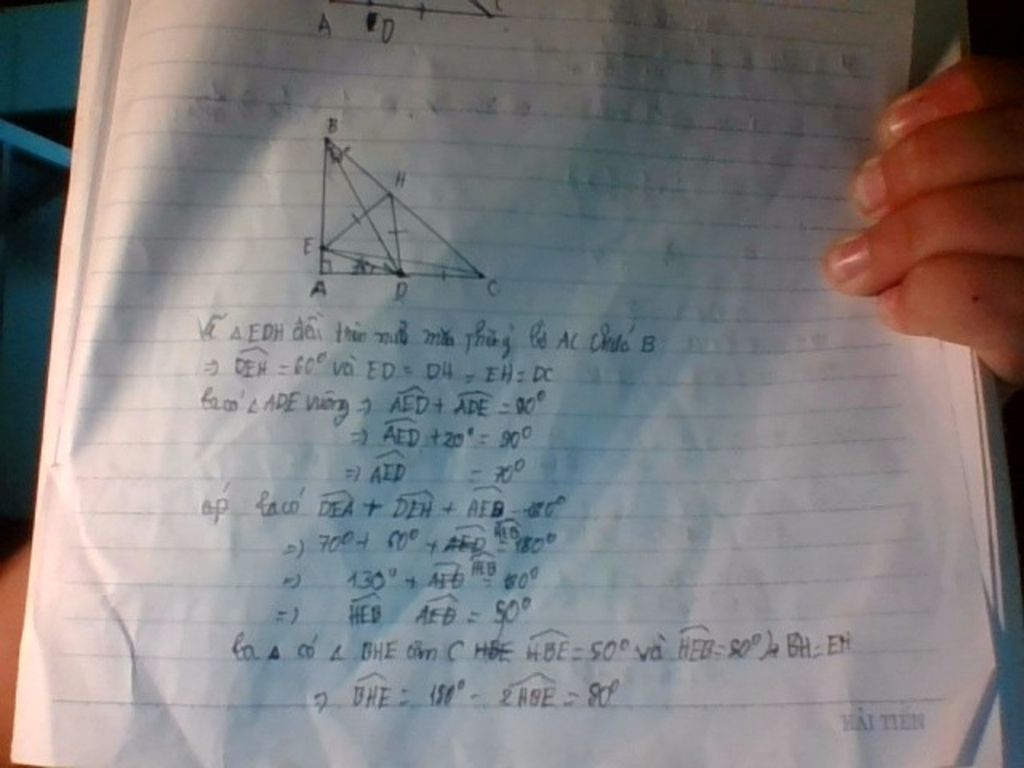 A D C
B
H
E
A D C
Vẽ △EDH đều trên nửa mặt phẳng bờ AC chứa B
⇒ DEH = 60° và ED = DH = EH = DC
ta có △ADE vuông ⇒ AED + ADE = 90°
⇒ AED + 20° = 90°
⇒ AED = 70°
ta có DEA + DEH + AEB = 180°
⇒ 70° + 60° + HEB = 180°
⇒ 130° + HEB = 180°
⇒ HEB = 50°
ta có △ BHE cân HBE = 50° và HEB = 50° BH = EH
⇒ BHE = 180° - 2HBE = 80°
HẢI TIẾN